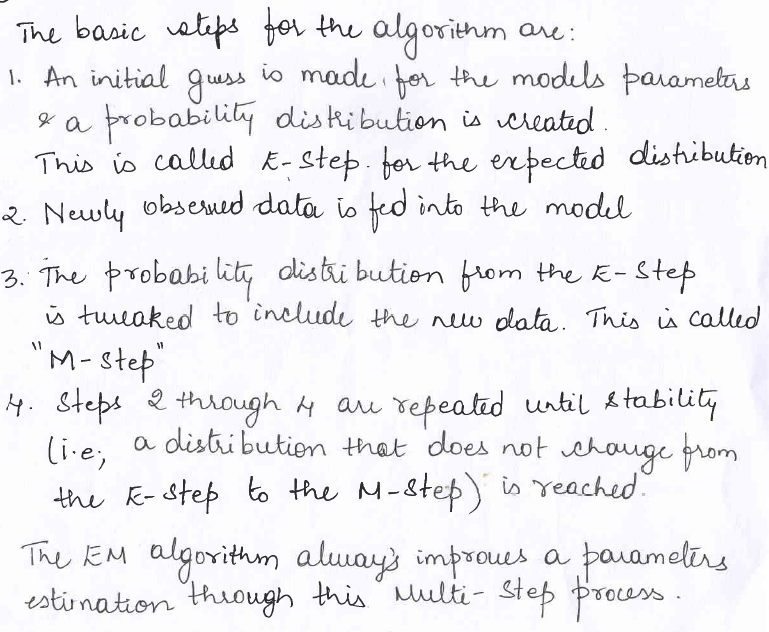 The basic steps for the algorithm are:
1. An initial guess is made for the models parameters
& a probability distribution is created.
This is called E-Step. for the expected distribution
2. Newly observed data is fed into the model
3. The probability distribution from the E-Step
is tweaked to include the new data. This is called
"M-Step"
4. Steps 2 through 4 are repeated until stability
(i.e; a distribution that does not change from
the E-Step to the M-Step) is reached.
The EM algorithm always improves a parameters
estimation through this Multi-Step process.